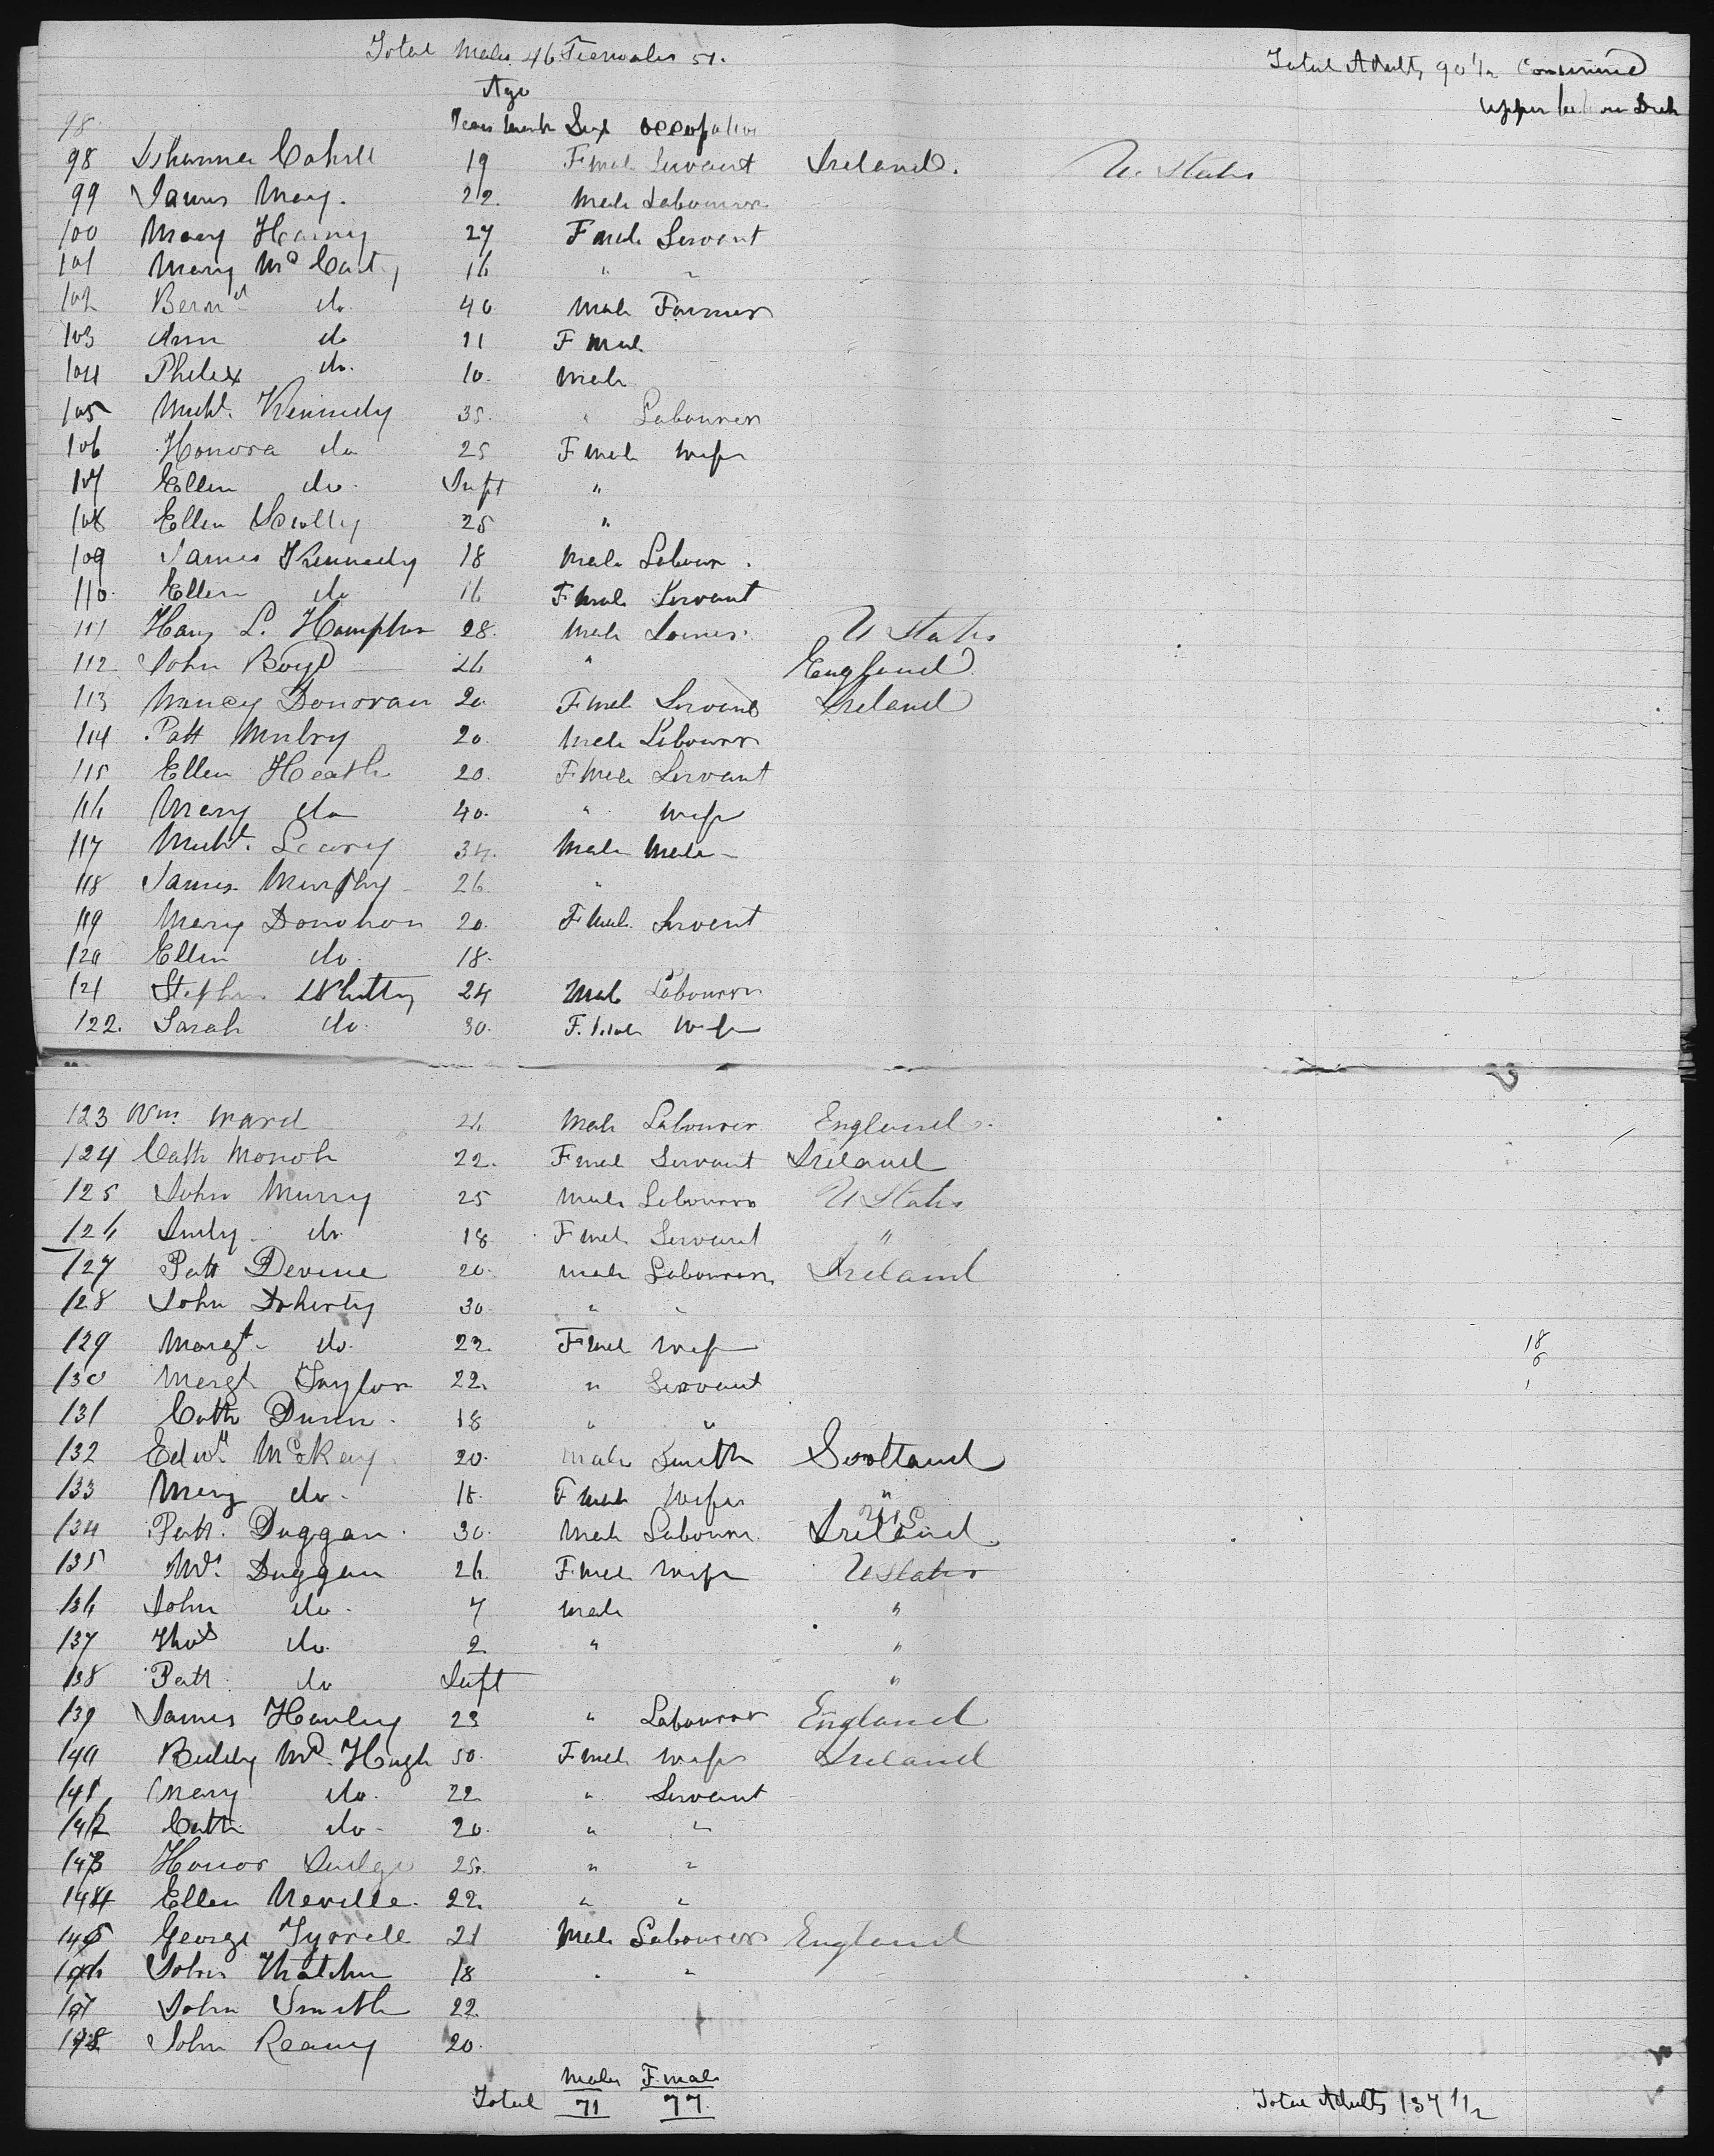 Total Males 46 Females 51.
Total Adults 90 1/2 Continued
Upper
Age
98
Years Months Sex occupation
98 Johanna Cahill 19 Fmale Servant Ireland. U. States
99 James Mary. 22. Male Labourer
100 Mary 27 Fmale Servant
101 Mary McCarty 16 " "
102 Bernd do. 40 Male Farmer
103 Ann do 11 Fmale
104 Philex do. 10. Male
105 Michl. Kennedy 35. " Labourer
106 Honora do 25 Fmale Wife
107 Ellen do. Inft "
108 Ellen Scully 25 "
109 James Kennedy 18 Male Labour.
110. Ellen do 16 Fmale Servant
111 L. Hampton 28. Male U States
112. John Boyd 26 " England
113 Nancy Donovan 20. Fmale Servant Ireland
114 Patt 20. Male Labourer
115 Ellen Heath 20. Fmale Servant
116 Mary do 40. " Wife
117 Michl. Leary 34. Male Male
118 James Murphy 26. "
119 Mary Donohon 20. Fmale Servent
120 Ellen do. 18.
121 Stephen Whitty 24 Male Labourer
122. Sarah do. 30. F. Male Wife
123 Wm. Ward 26 Male Labourer England.
124 Cath Monoh 22. Fmale Servant Ireland
125 John Murry 25 Male Labourer U States
126 Judy do. 18 Fmale Servant "
127 Patt Devine 20. Male Labourer Ireland
128 John Doherty 30. " "
129 Margt do. 22. Fmale Wife 18
6
130 Margt Taylor 22. " Servant 1
131 Cath Dunn. 18 " "
132 Edwd McKay 20. Male Smith Scotland
133 Mary do. 18. Fmale Wife "
134 Patt. Duggan. 30. Male Labourer. Ireland
135 Mrs. Duggan 26. Fmale Wife U States
136 John do. 7 Male "
137 Thos do. 2 " "
138 Patt do Inft "
139 James Hanley 23 " Labourer England
140 Biddy Mc.Hugh 50. Fmale Wife Ireland
141 Mary do. 22 " Servant
142 Cath do. 20. " "
143 Honor Judge 25. " "
144 Ellen Neville. 22. " "
145 George Tyrrell 21 Male Labourer England
146 John Thatcher 18 " "
147 John Smith 22.
148 John Reany 20.
Males Fmale
Total 71 77.
Total Adults 137 1/2